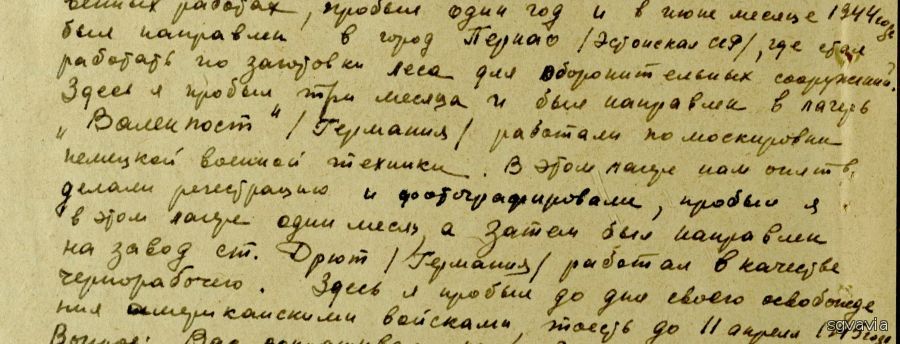 венных работах, пробыл один год и в июне месяце 1944 году
был направлен в город Пернао /Эстонская ССР/, где стал
работать по заготовки леса для оборонительных сооружений.
Здесь я пробыл три месяца и был направлен в лагерь
„Валенпост" /Германия/ работали по москировки
немецкой военной техники. В этом лагре нам опять
делали регестрацию и фотографировали, пробыл я
в этом лагре один месяц а затем был направлен
на завод ст. Дрют /Германия/ работал в качестве
чернорабочего. Здесь я пробыл до дня своего освобожде
ния американскими войсками, тоесть до 11 апреля
Вопрос: Вас
sgvavia